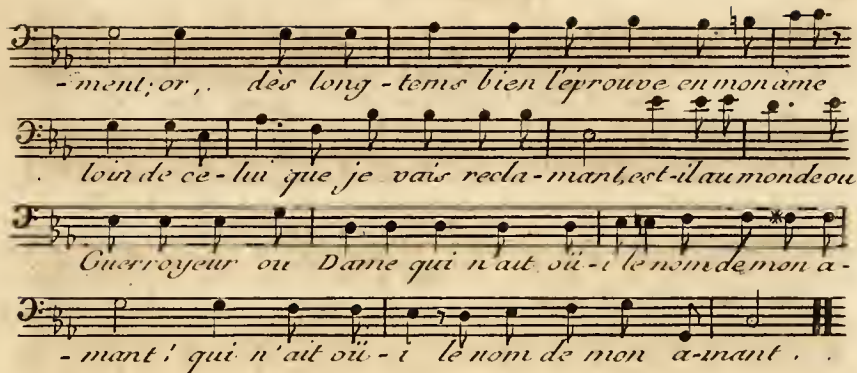 -ment; or, dès long-tems bien l'éprouve en mon àme
loin de ce-lui que je vais recla-mant, est-il au monde ou
Guerroyeur ou Dame qui n'ait oü-i le nom de mon a-
-mant! qui n'ait oü-i le nom de mon a-mant.